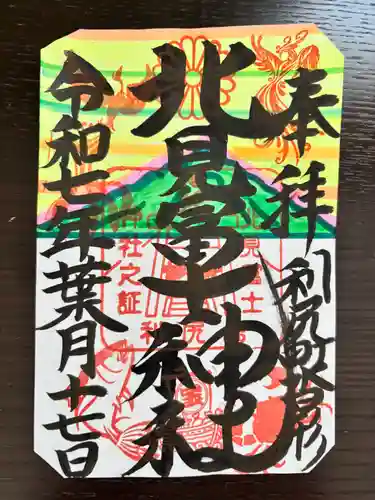 奉拝
利尻町沓形
北見富士神社
令和七年葉月十七日
北見富士
神社之証